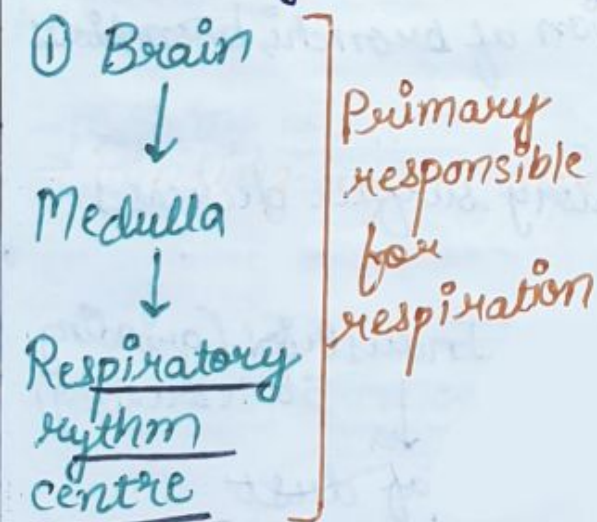 ① Brain
↓
Medulla
↓
Respiratory
rythm
centre
Primary
responsible
for
respiration